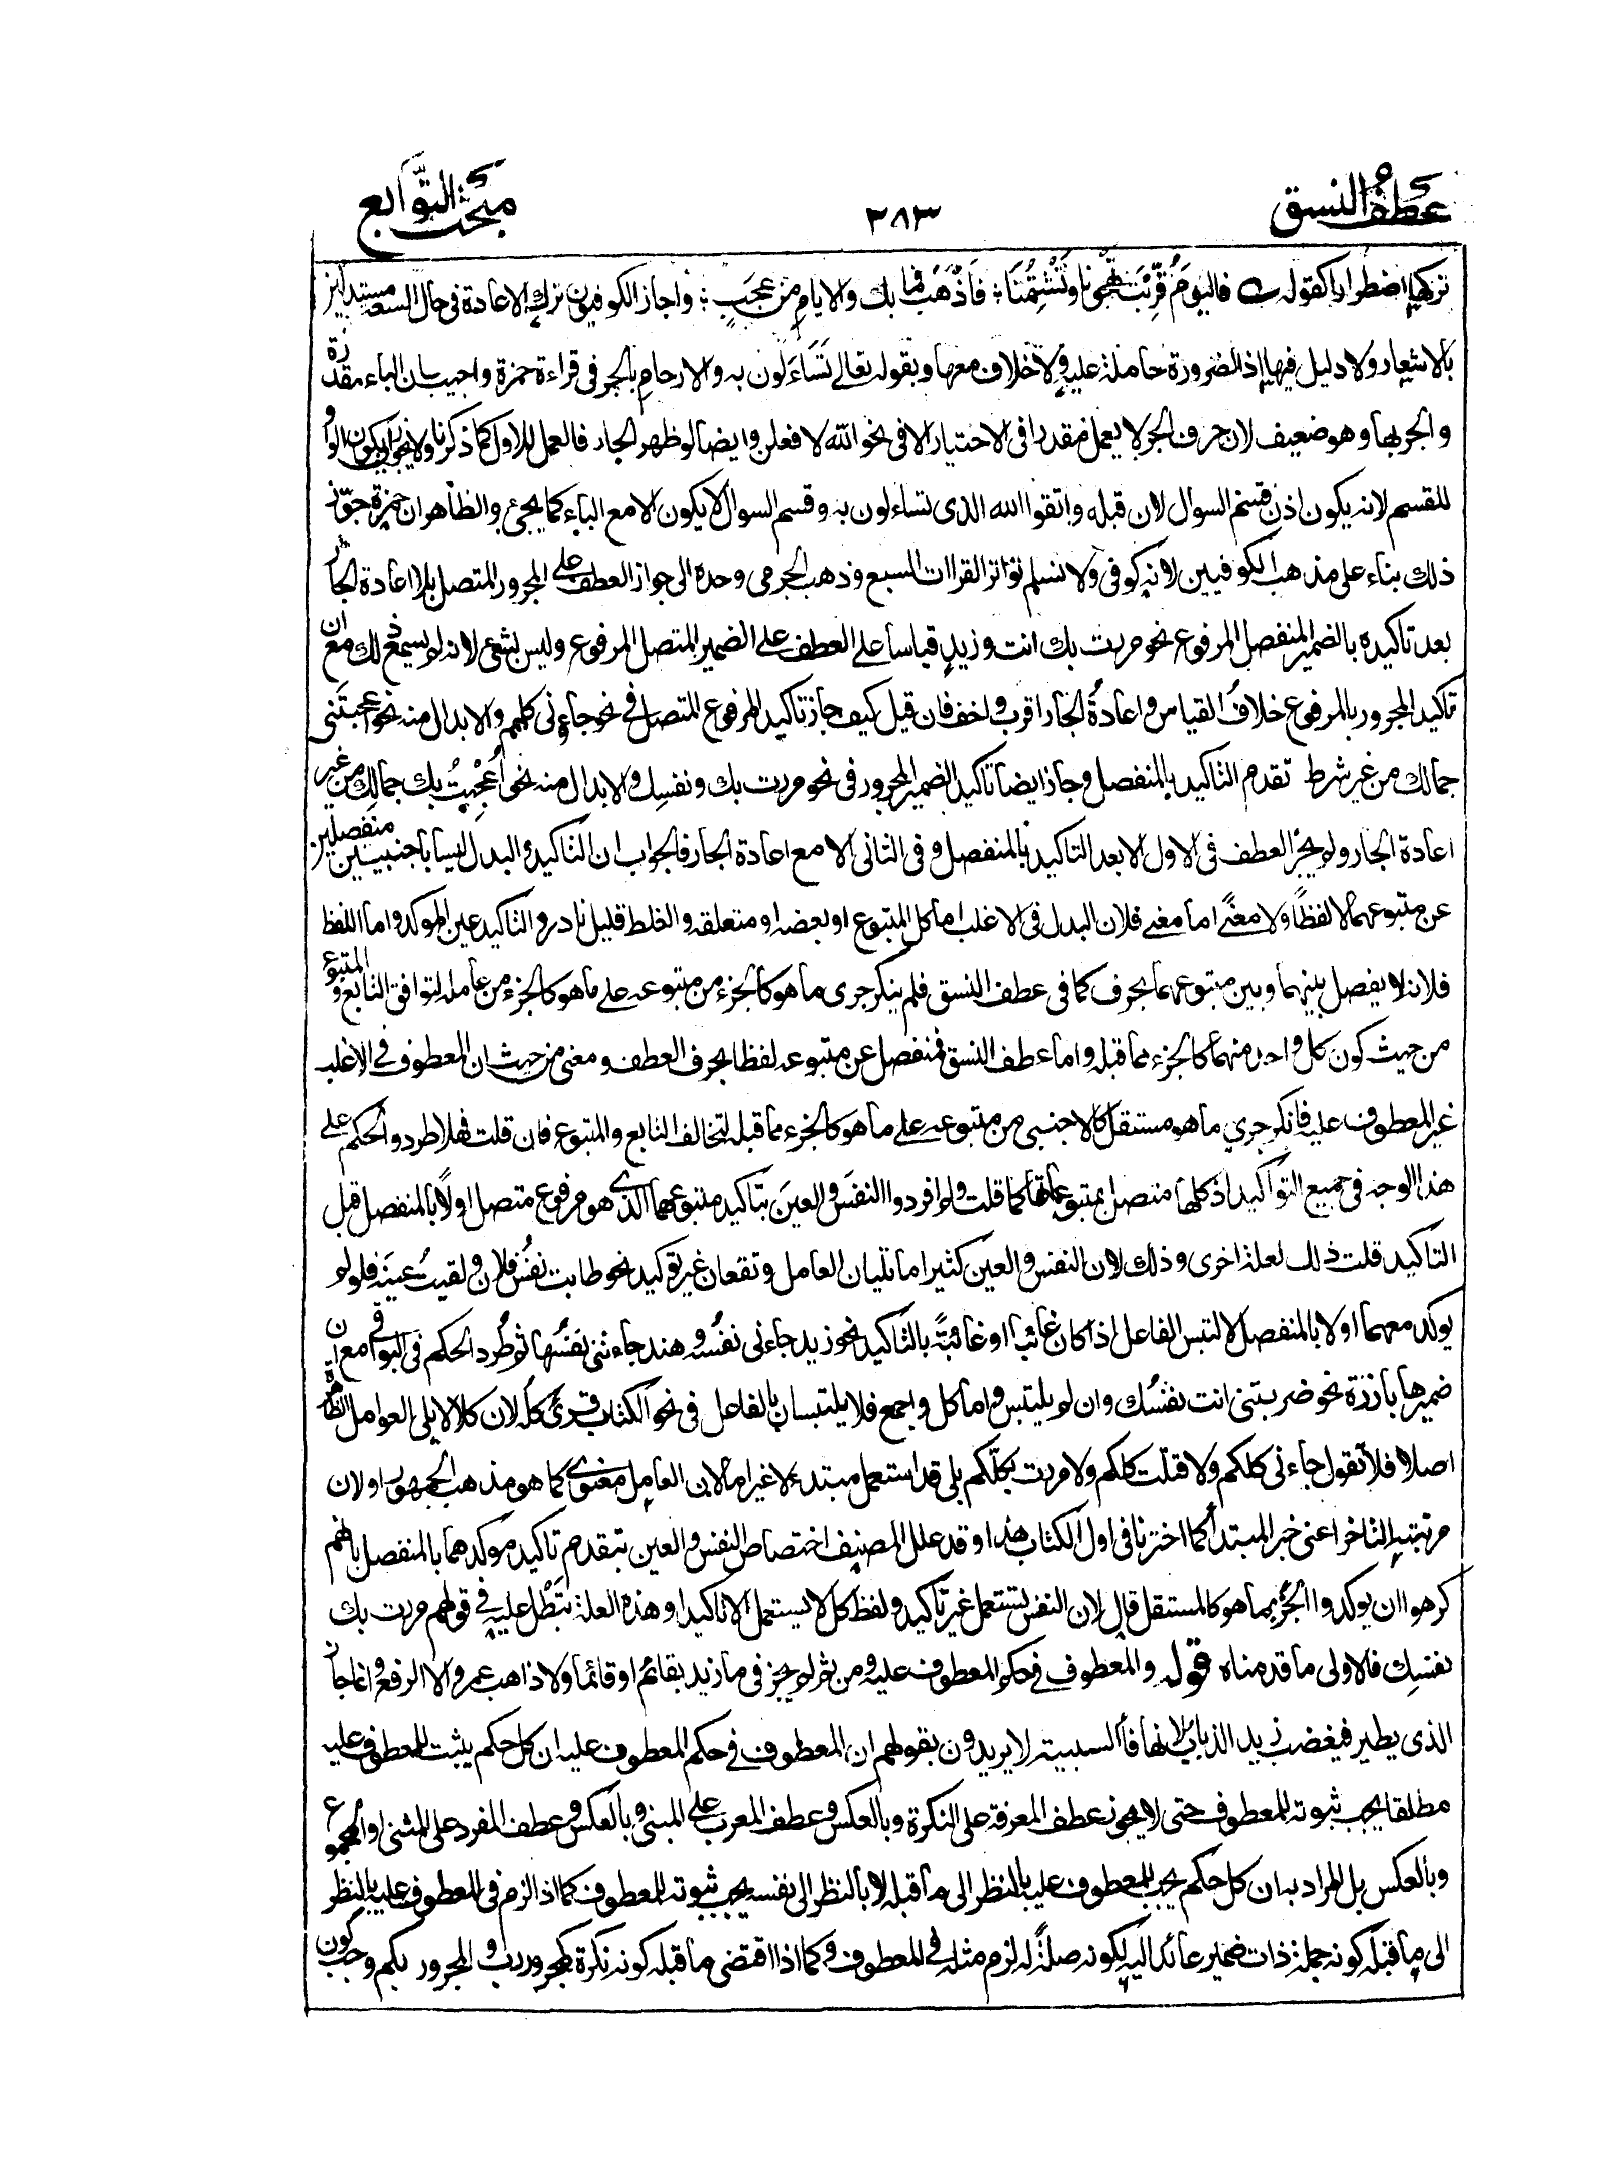 عطف النسق
٣٨٣
مبحث التوابع
تركها اضطرارا كقوله ؎ فاليوم قَرَّبْتَ تهجونا وتَشْتِمُنَا ؛ فاذْهَبْ فما بك والايامِ من عَجَبٍ ؛ واجاز الكوفيون ترك الاعادة فى حال السعة مستدلين
بالاشعار ولا دليل فيها اذ الضرورة حاملة عليه ولا خلاف معها وبقوله تعالى تَسَاءَلون به والارحامِ بالجر فى قراءة حمزة واجيب بان الباء مقدرة
والجر بها وهو ضعيف لان حرف الجر لا يعمل مقدرا فى الاختيار الا فى نحو الله لافعلن وايضا لو ظهر الجار فالعمل للاول كما ذكرنا ولا يجوز ان يكون الواو
للقسم لانه يكون اذن قسم السوال لان قبله واتقوا الله الذى تساءلون به وقسم السوال لا يكون الا مع الباء كما يجئ والظاهر ان حمزة جوّز
ذلك بناء على مذهب الكوفيين لانه كوفى ولا نسلم تواتر القراات السبع وذهب الجرمى وحده الى جواز العطف على المجرور المتصل بلا اعادة الجارّ
بعد تاكيده بالضمير المنفصل المرفوع نحو مررت بك انت وزيدٍ قياسا على العطف على الضمير المتصل المرفوع وليس بشئ لانه لم يسمع ذلك مع ان
تاكيد المجرور بالمرفوع خلافُ القياس واعادةُ الجار اقرب واخف فان قيل كيف جاز تاكيد المرفوع المتصل فى نحو جاءونى كلهم والابدال منه نحو اعجبتَنى
جمالك من غير شرط تقدم التاكيد بالمنفصل وجاز ايضا تاكيد الضمير المجرور فى نحو مررت بك ونفسِك والابدال منه نحو اُعْجِبْتُ بك جمالِك من غير
اعادة الجار ولم يجز العطف فى الاول الا بعد التاكيد بالمنفصل وفى الثانى الا مع اعادة الجار فالجواب ان التاكيد والبدل ليسا باجنبيين منفصلين
عن متبوعهما لا لفظًا ولا معنًى اما معنى فلان البدل فى الاغلب اما كل المتبوع او بعضه او متعلقه والغلط قليل نادر والتاكيد عين الموكد واما اللفظ
فلانه لا يفصل بينهما وبين متبوعهما بحرف كما فى عطف النسق فلم ينكر جرى ما هو كالجزء من متبوعه على ما هو كالجزء من عامله لتوافق التابع والمتبوع
من حيث كون كل واحد منهما كالجزء مما قبله واما عطف النسق فمنفصل عن متبوعه لفظا بحرف العطف ومعنى من حيث ان المعطوف فى الاغلب
غير المعطوف عليه فانكر جرى ما هو مستقل كالاجنبى من متبوعه على ما هو كالجزء مما قبله لتخالف التابع والمتبوع فان قلت فهلا طردوا الحكم على
هذا الوجه فى جميع التواكيد اذ كلها متصل بمتبوعاتها كما قلت ولم افردوا النفسَ والعينَ بتاكيد متبوعهما الذى هو مرفوع متصل اولًا بالمنفصل قبل
التاكيد قلت ذلك لعلة اخرى وذلك لان النفس والعين كثيرا ما تليان العامل وتقعان غير توكيد نحو طابت نفسُ فلان ولقيت عينَه فلو لم
يوكد معهما اولا بالمنفصل لالتبس الفاعل اذا كان غائبا او غائبةً بالتاكيد نحو زيد جاءنى نفسُه وهند جاءتنى نَفسُها ثم طُرد الحكم فى البواقى مع ان
ضميرها بارزة نحو ضربتنى انت نفسُك وان لم يلتبس واما كل واجمع فلا يلتبسان بالفاعل فى نحو الكتاب قُرِئ كلُه لان كلا لا يلى العوامل الظاهرة
اصلا فلا تقول جاءنى كلكم ولا قتلت كلكم ولا مررت بكلّكم بلى قد استعمل مبتدءً لا غير اما لان العامل معنوى كما هو مذهب الجمهور او لان
مرتبته التاخر اعنى خبر المبتدأ كما اخترنا فى اول الكتاب هذا وقد علل المصنف اختصاص النفس والعين بتقدم تاكيد موكدهما بالمنفصل بانهم
كرهوا ان يوكدوا الجزءَ بما هو كالمستقل قال لان النفس تستعمل غير تاكيد ولفظ كل لا يستعمل الا تاكيدا وهذه العلة تبطل عليه فى قولهم مررت بك
نفسِك فالاولى ما قدمناه قوله والمعطوف فى حكم المعطوف عليه ومن ثم لم يجز فى ما زيد بقائم او قائما ولا ذاهب عمرو الا الرفع وانما جاز
الذى يطير فيغضب زيد الذباب لانها فاء السببية لا يريدون بقولهم ان المعطوف فى حكم المعطوف عليه ان كل حكم يثبت للمعطوف عليه
مطلقا يجب ثبوته للمعطوف حتى لا يجوز عطف المعرفة على النكرة وبالعكس وعطف المعرب على المبنى وبالعكس وعطف المفرد على المثنى او المجموع
وبالعكس بل المراد به ان كل حكم يجب للمعطوف عليه بالنظر الى ما قبله لا بالنظر الى نفسه يجب ثبوته للمعطوف كما اذا لزم فى المعطوف عليه بالنظر
الى ما قبله كونه جملة ذات ضمير عائد اليه لكونه صلةً له لزم مثله فى المعطوف وكما اذا اقتضى ما قبله كونه نكرة كمجرور رب والمجرور بكم وجب كون